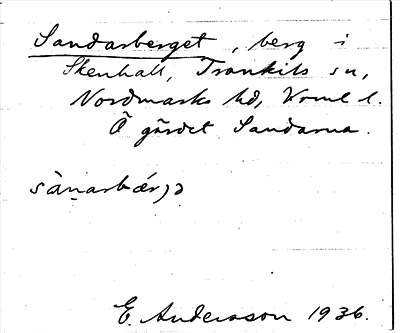 Sandarberget, berg i
Skenhall, Trankils sn,
Nordmarks hd, Vrml l.
Å gärdet Sandarna.
sànarbær̨ə
E. Andersson 1936.